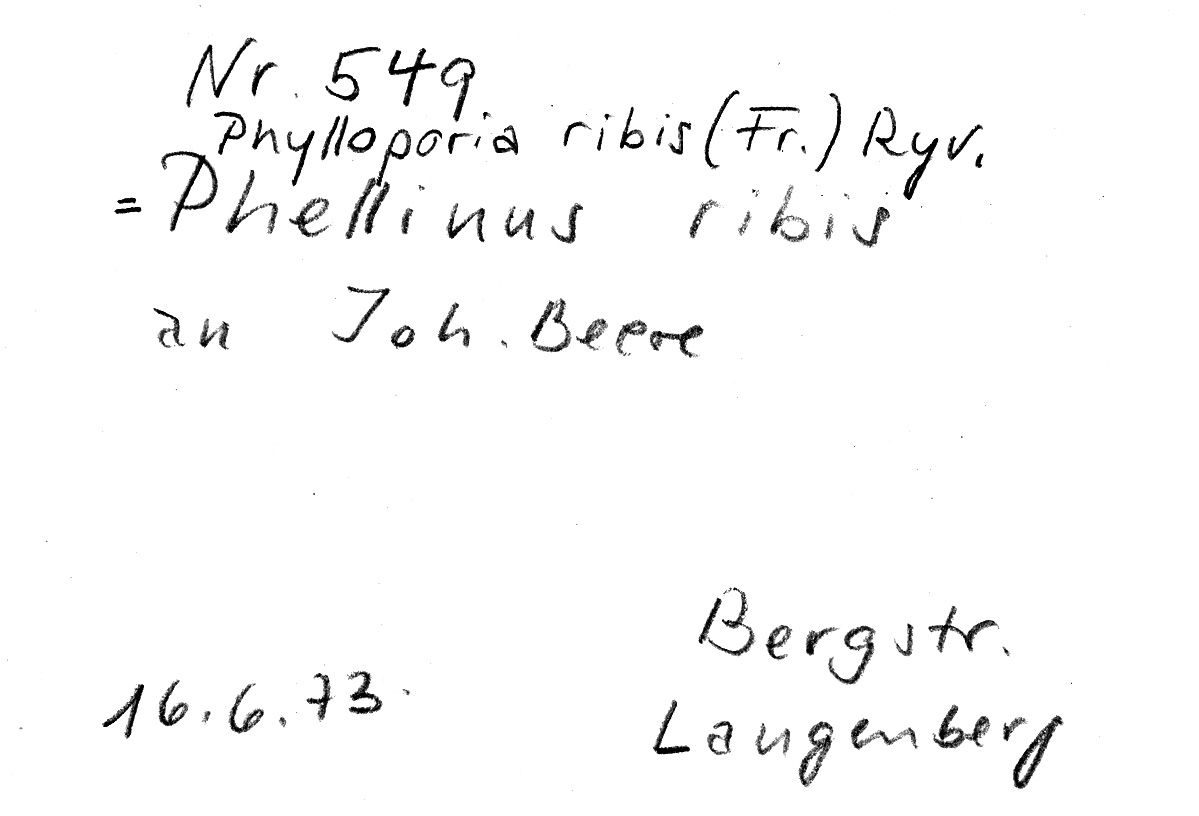 Nr. 549
Phylloporia ribis (Fr.) Ryv.
= Phellinus ribis
an Joh. Beere
Bergstr.
16.6.73.
Langenberg